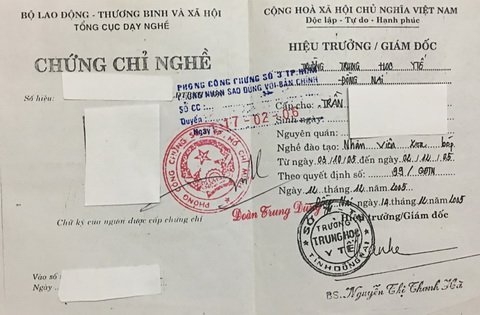 BỘ LAO ĐỘNG - THƯƠNG BINH VÀ XÃ HỘI
TỔNG CỤC DẠY NGHỀ
CHỨNG CHỈ NGHỀ
Số hiệu:
PHÒNG CÔNG CHỨNG SỐ 3 TP.HCM
CHỨNG NHẬN SAO ĐÚNG VỚI BẢN CHÍNH
SỐ CC:
Quyển
Ngày
17-02-06
Đoàn Trung Dũng
Chữ ký của người được cấp chứng chỉ
Vào sổ
Ngày
CỘNG HOÀ XÃ HỘI CHỦ NGHĨA VIỆT NAM
Độc lập - Tự do - Hạnh phúc
HIỆU TRƯỞNG / GIÁM ĐỐC
TRƯỜNG TRUNG HỌC Y TẾ
ĐỒNG NAI
Cấp cho: TRẦN
Sinh ngày
Nguyên quán:
Nghề đào tạo: Nhân viên Xoa bóp
Từ ngày 03/10/05 đến ngày 04/11/05
Theo quyết định số: 99/QĐTN
Ngày 14 tháng 11 năm 2005
Đồng Nai, ngày 14 tháng 11 năm 2005
Hiệu trưởng/Giám đốc
TRƯỜNG
TRUNG HỌC
Y TẾ
TỈNH ĐỒNG NAI
BS. Nguyễn Thị Thanh Hà